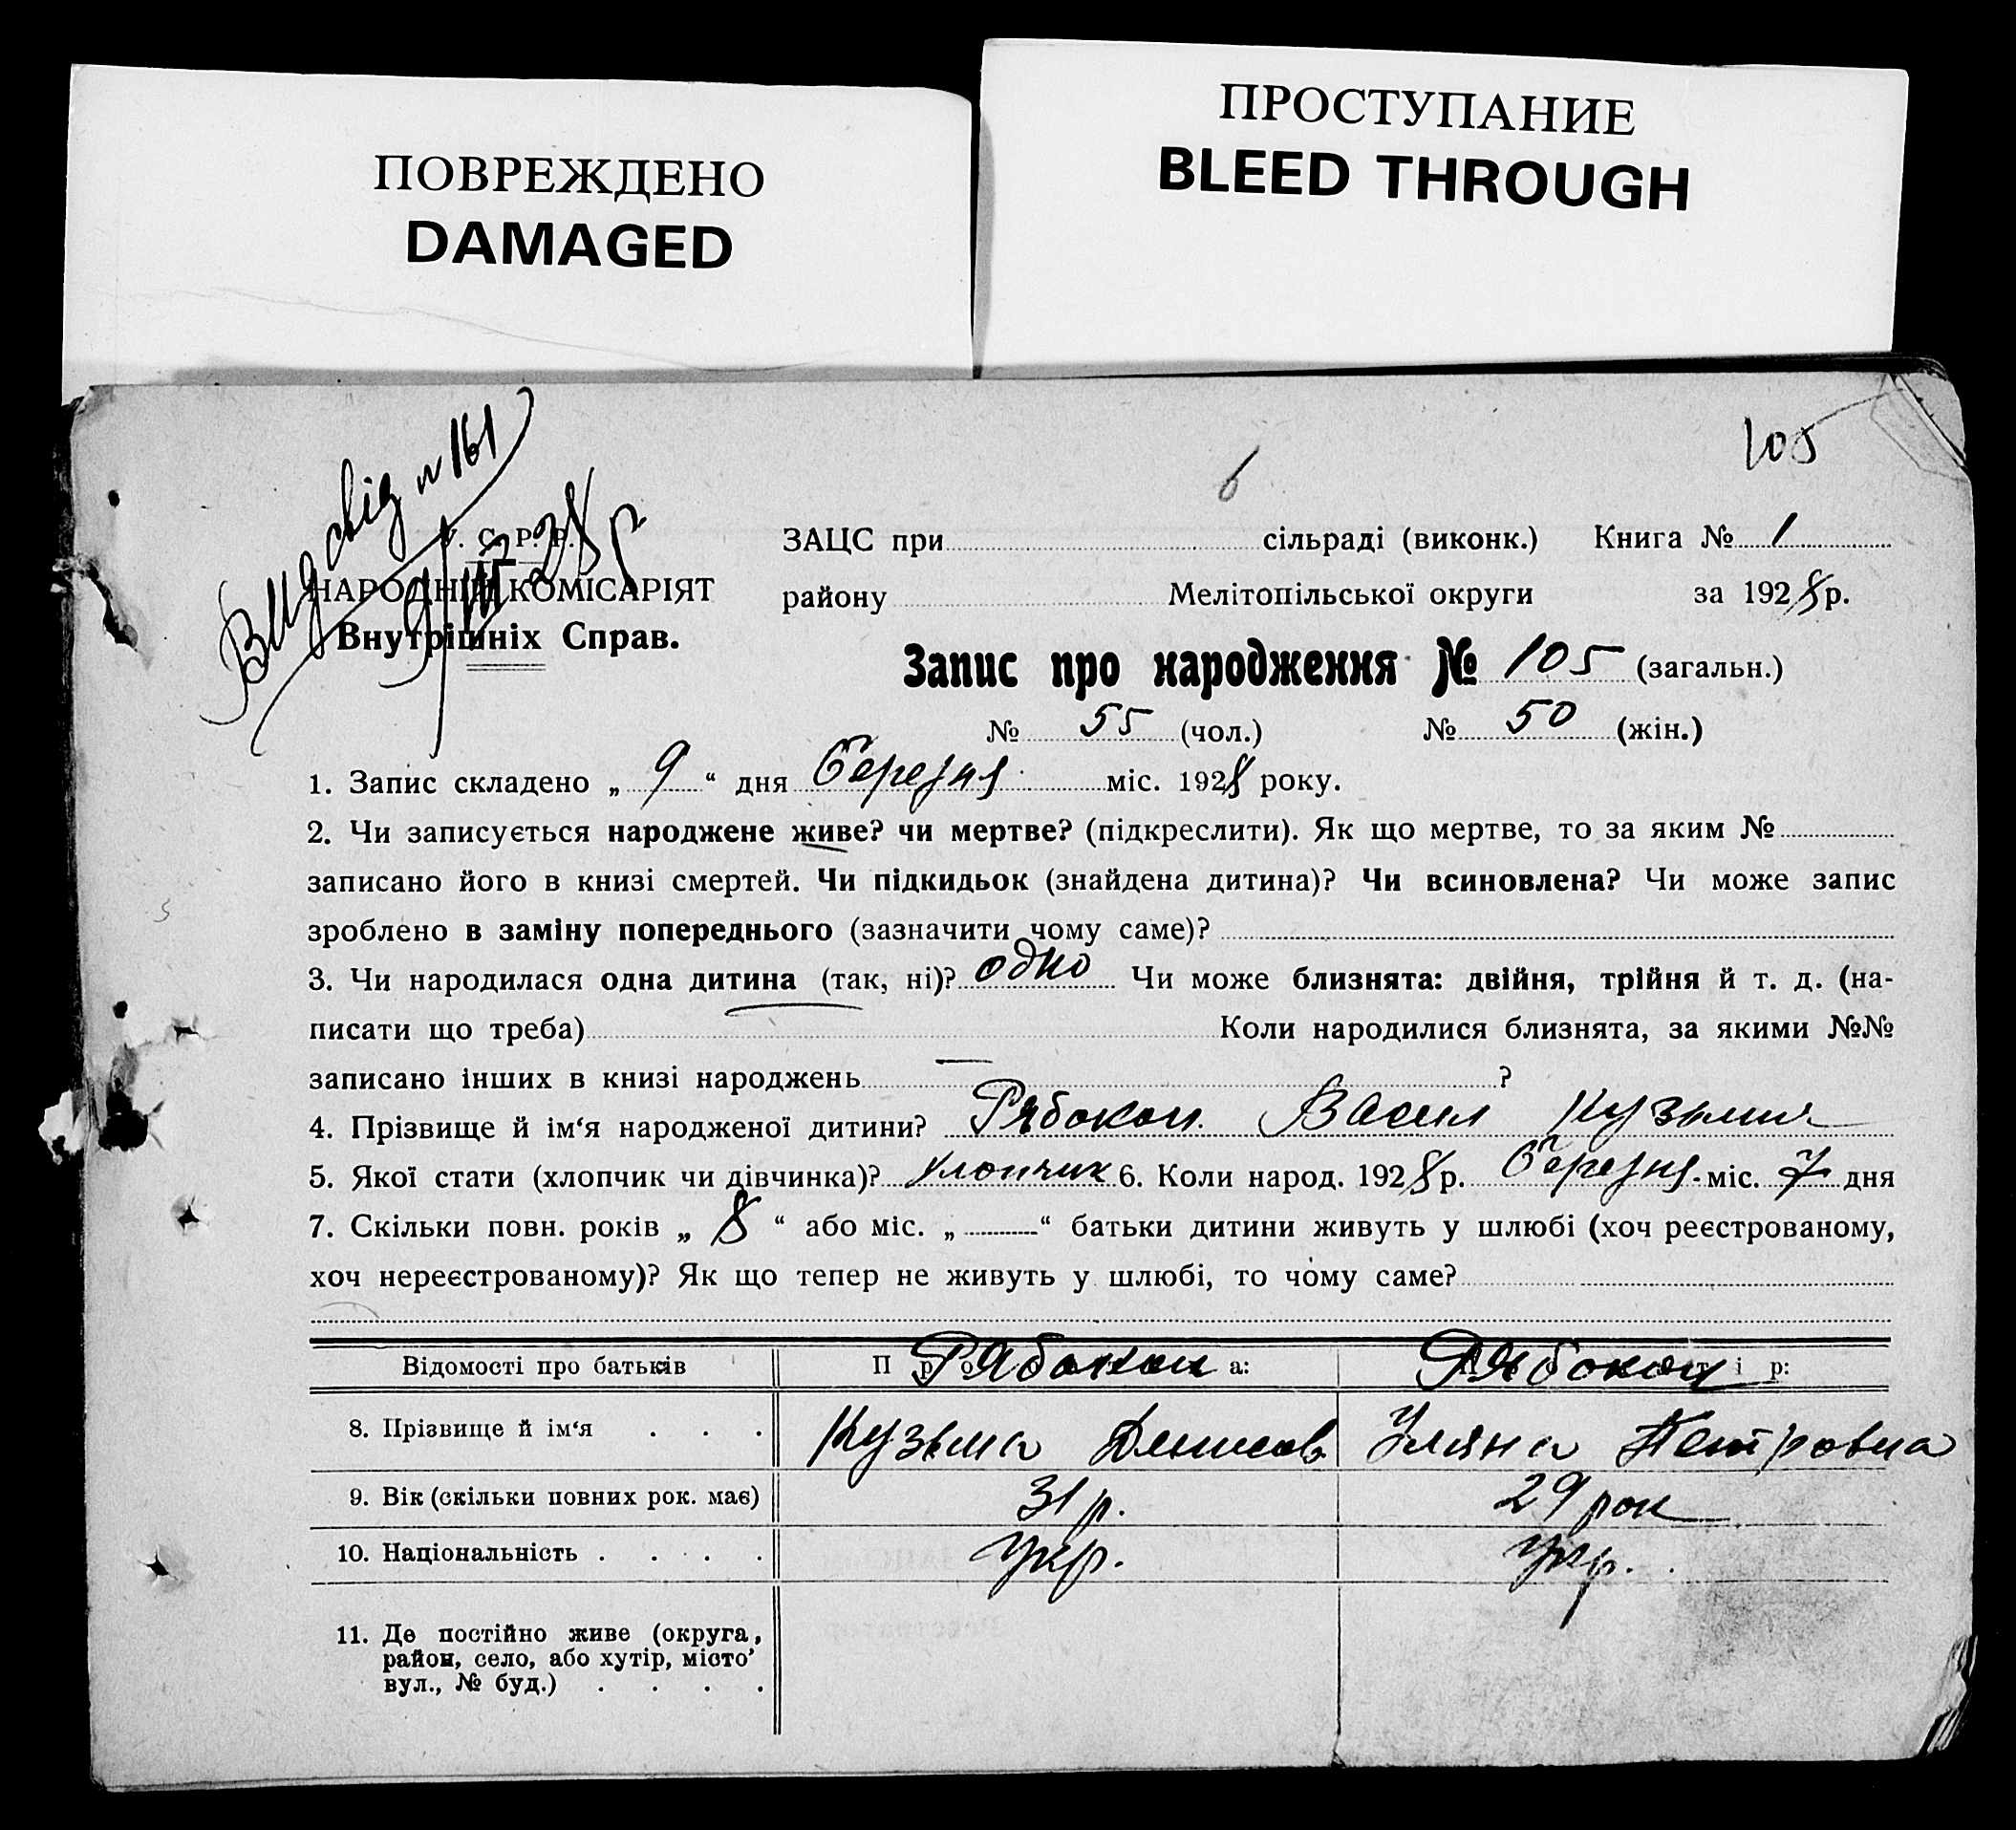 ПОВРЕЖДЕНО
DAMAGED
ПРОСТУПАНИЕ
BLEED THROUGH
105
Вид свід № 161
9/III 28 р
У. С. Р. Р.
НАРОДНІЙ КОМІСАРІЯТ
Внутрішніх Справ.
ЗАЦС при сільраді (виконк.) Книга № 1
району Мелітопільської округи за 1928 р.
Запис про народження № 105 (загальн.)
№ 55 (чол.) № 50 (жін.)
1. Запис складено „ 9 “ дня березня міс. 1928 року.
2. Чи записується народжене живе? чи мертве? (підкреслити). Як що мертве, то за яким №
записано його в книзі смертей. Чи підкидьок (знайдена дитина)? Чи всиновлена? Чи може запис
зроблено в заміну попереднього (зазначити чому саме)?
3. Чи народилася одна дитина (так, ні)? одно Чи може близнята: двійня, трійня й т. д. (на-
писати що треба) Коли народилися близнята, за якими №№
записано інших в книзі народжень — ?
4. Прізвище й ім‘я народженої дитини? Рябокон Васил Кузьмич
5. Якої стати (хлопчик чи дівчинка)? хлопчик 6. Коли народ. 1928 р. березня міс. 7 дня
7. Скільки повн. років „ 8 “ або міс. „ “ батьки дитини живуть у шлюбі (хоч реєстрованому,
хоч нереєстрованому)? Як що тепер не живуть у шлюбі, то чому саме?
Відомості про батьків Рябокон Рябокон
8. Прізвище й ім‘я Кузьма Денисов Уляна Петровна
9. Вік (скільки повних рок. має) 31 р. 29 рок
10. Національність укр. укр.
11. Де постійно живе (округа,
район, село, або хутір, місто
вул., № буд.)